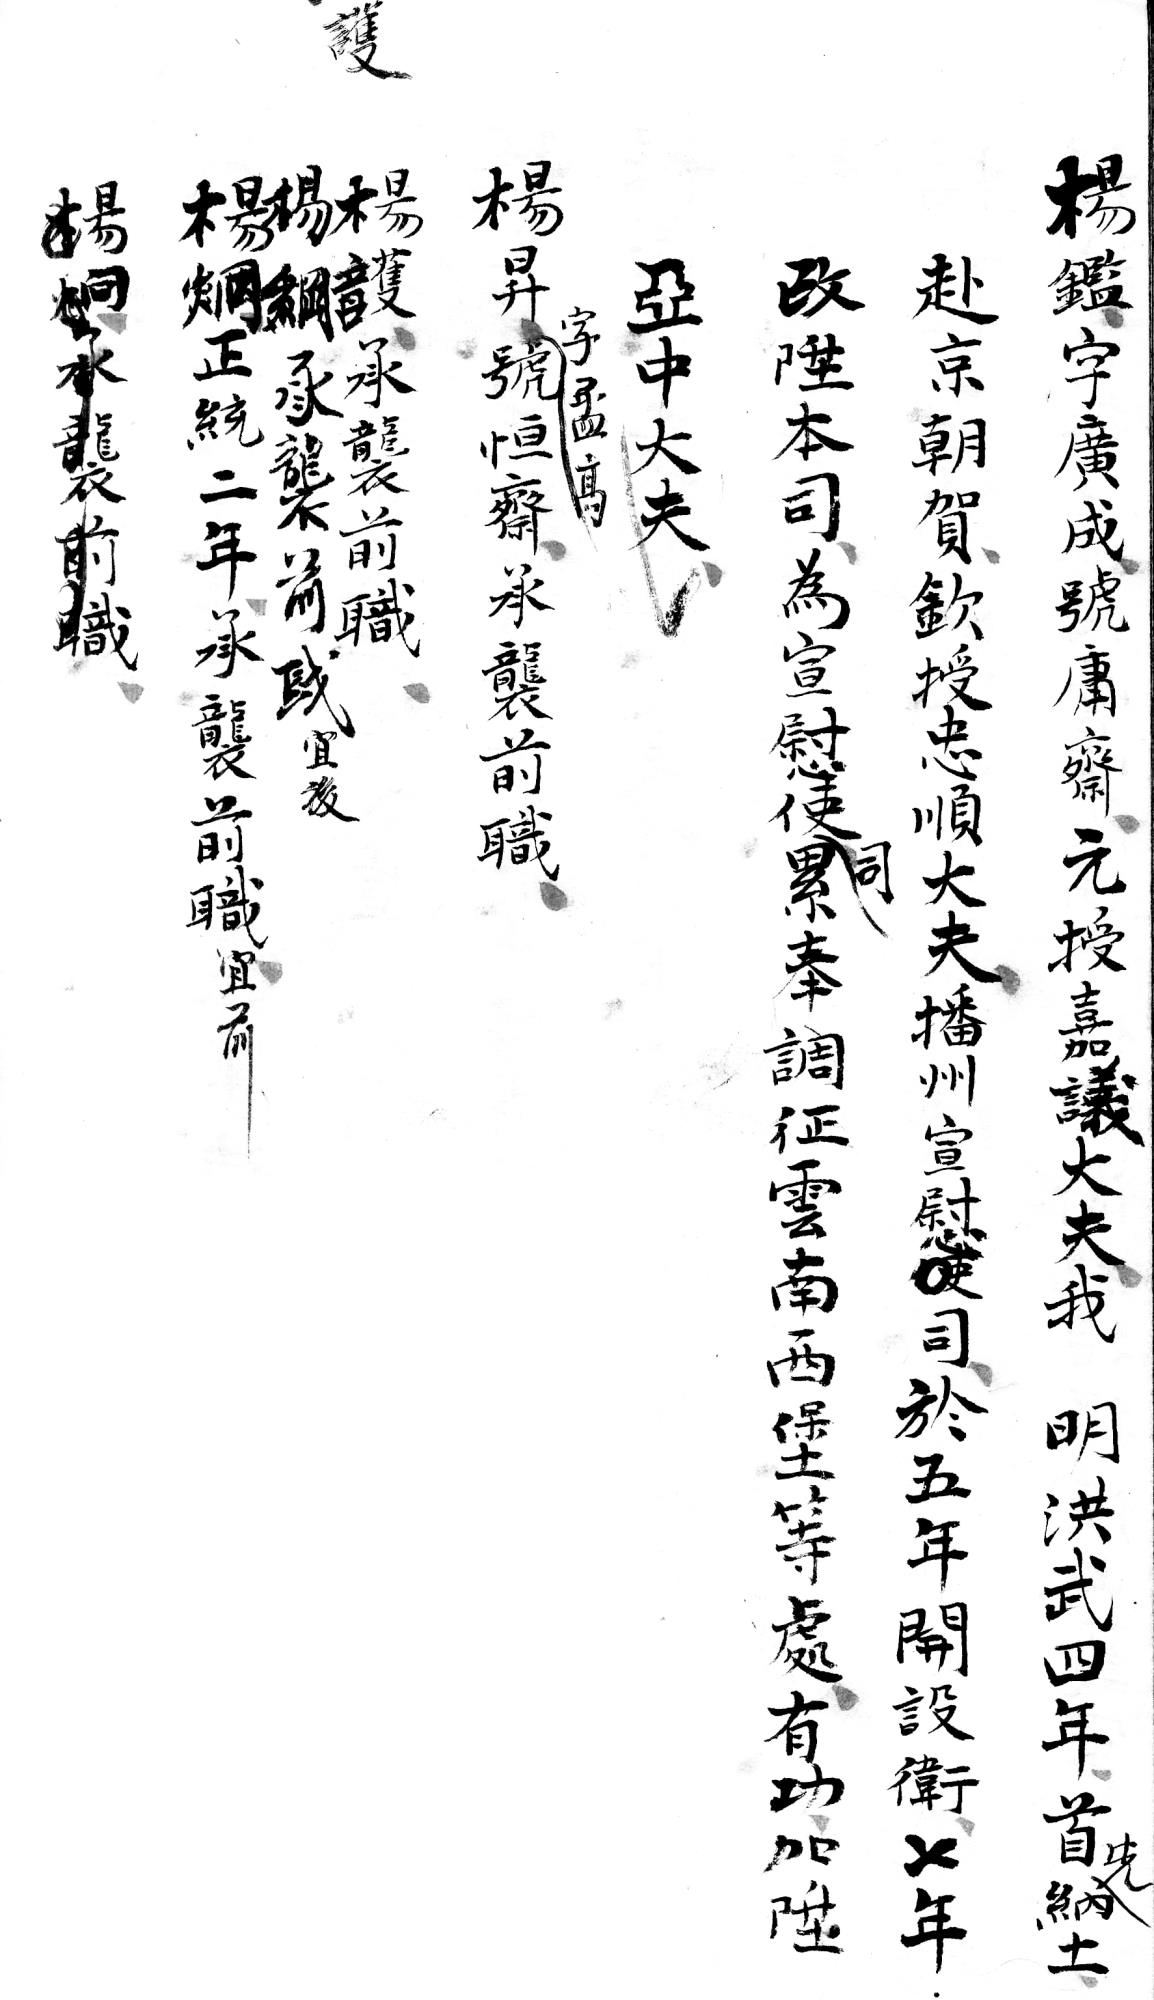 楊鑑字廣成號庸齋元授嘉議大夫我 明洪武四年首先納土
赴京朝賀欽授忠順大夫播州宣慰使司於五年開設衛七年
改陞本司為宣慰使司累奉調征雲南西堡等處有功加陞
亞中大夫
字孟高
楊昇號恒齋承襲前職
護
楊護承襲前職
楊綱承襲前职宜後
楊炯正統二年承襲前職宜前
楊炯承襲前職